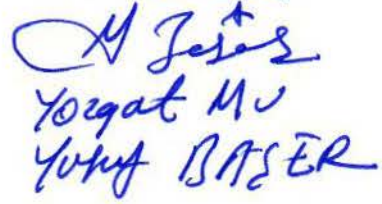 Yozgat Mv
Yusuf BAŞER